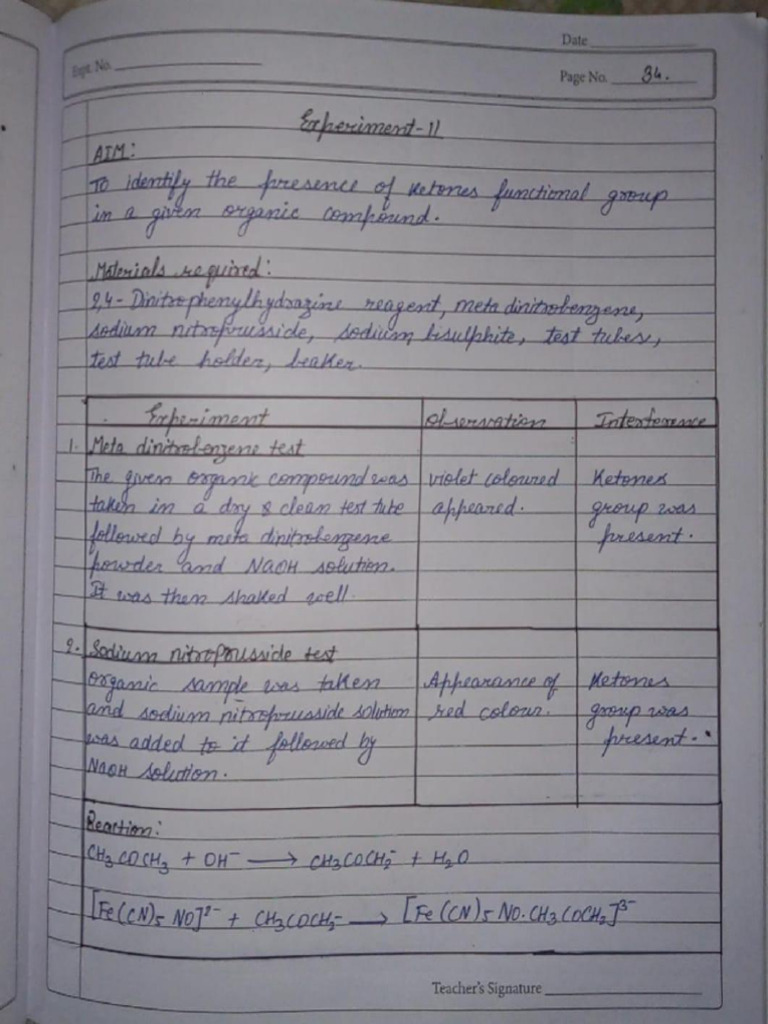 Date
Expt. No.
Page No. 34.
Experiment-11
AIM:
To identify the presence of ketones functional group
in a given organic compound.
Materials required:
2,4- Dinitrophenylhydrazine reagent, meta dinitrobenzene,
sodium nitroprusside, sodium bisulphite, test tubes,
test tube holder, beaker.
Experiment Observation Interference
1. Meta dinitrobenzene test
The given organic compound was violet coloured Ketones
taken in a dry & clean test tube appeared. group was
followed by meta dinitrobenzene present.
powder and NaOH solution.
It was then shaked well.
2. Sodium nitroprusside test
organic sample was taken Appearance of Ketones
and sodium nitroprusside solution red colour. group was
was added to it followed by present.
NaOH solution.
Reaction:
CH3COCH3 + OH⁻ ⟶ CH3COCH2⁻ + H2O
[Fe(CN)5 NO]²⁻ + CH3COCH2⁻ ⟶ [Fe(CN)5 NO·CH3COCH2]³⁻
Teacher's Signature